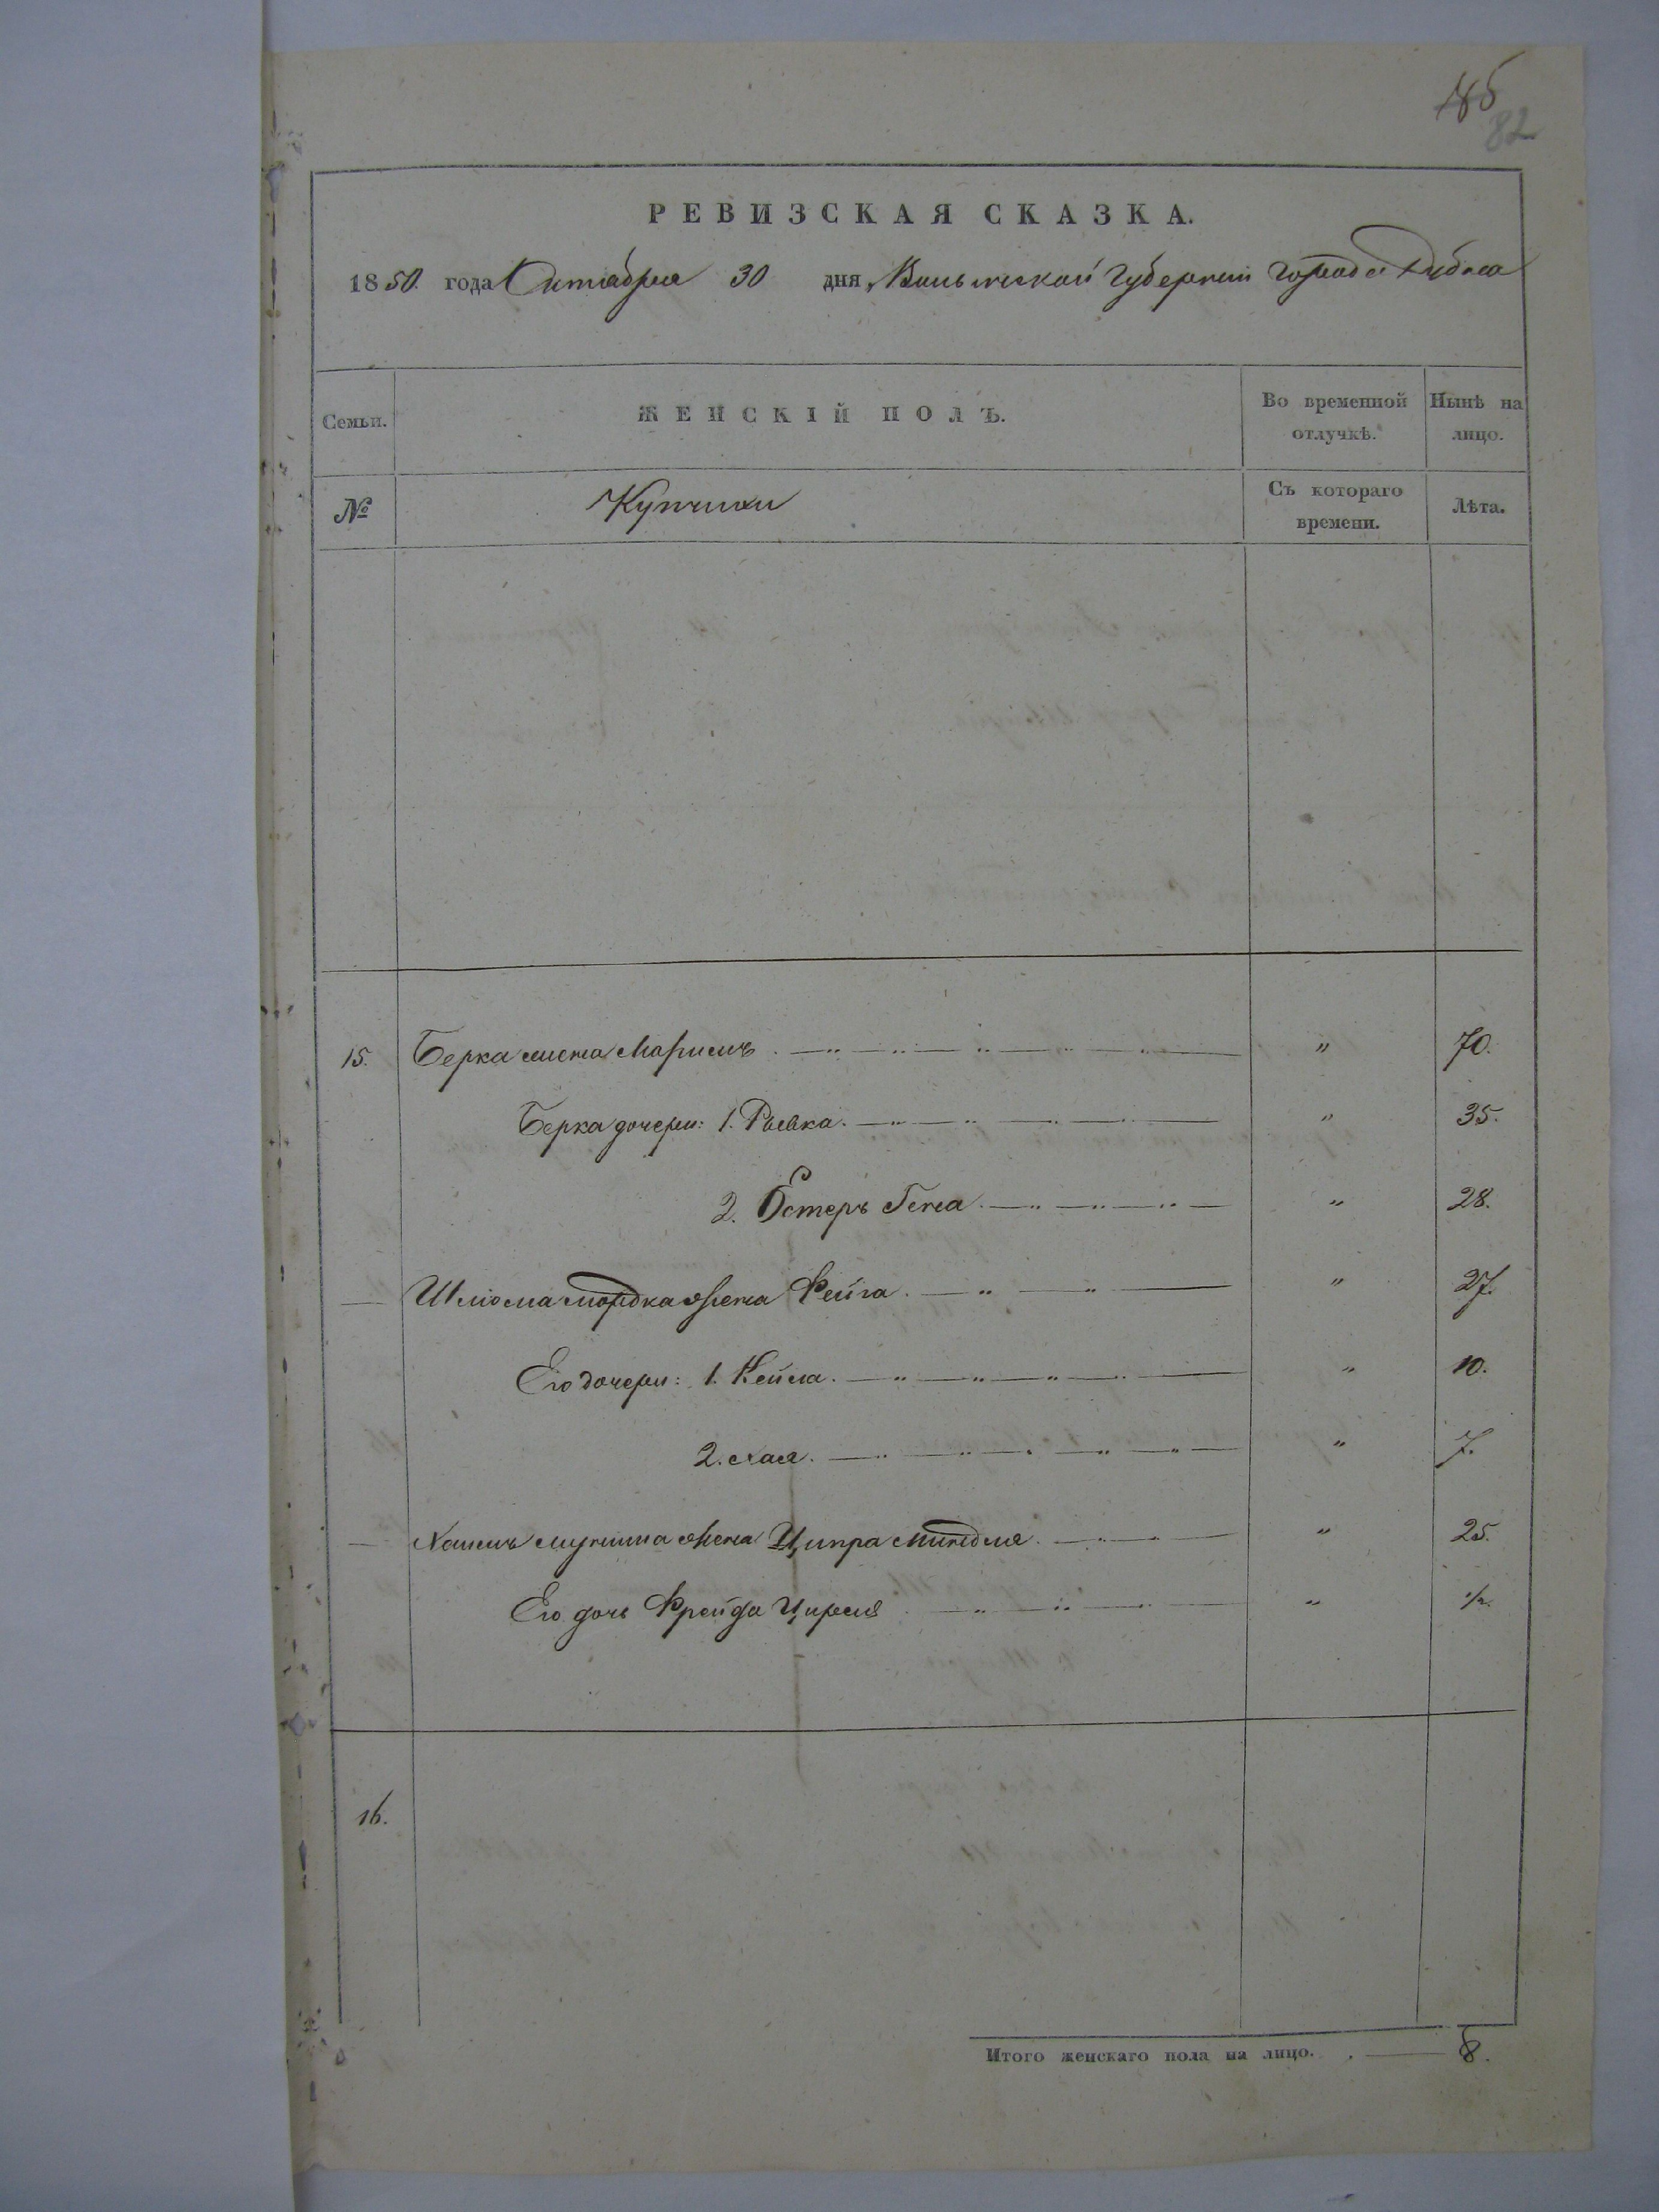 185
82
РЕВИЗСКАЯ СКАЗКА.
1850. года Октября 30 дня, Волынской Губернии города Дубна
Семьи. ЖЕНСКІЙ ПОЛЪ. Во временной отлучкѣ. Нынѣ на лицо.
№ Купчихи Съ котораго времени. Лѣта.
15. Берка жена Маріемъ " 70.
Берка дочери: 1. Рывка. " 35.
2. Естеръ Гена. " 28.
— Шліома Мордка жена Фейга. " 27.
Его дочери: 1. Кейла. " 10.
2. Хая. " 7.
— жена Ципра Миндля. " 25.
Его дочь Фрейда Циреля " 1/2.
16.
Итого женскаго пола на лицо. 8.